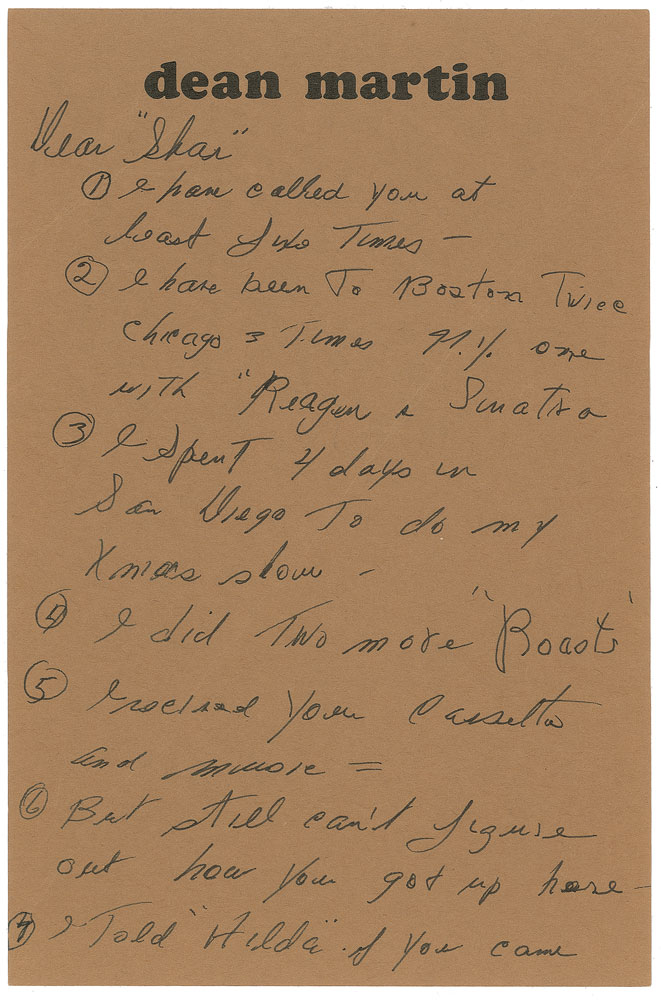 dean martin
Dear "Shar"
① I have called you at
least five Times —
② I have been To Boston Twice
Chicago 3 Times one
with "Reagen & Sinatra
③ I Spent 4 days in
San Diego To do my
Xmas show -
④ I did Two more "Roasts"
⑤ I recived your Cassette
and =
⑥ But still can't figure
out how you got up here —
⑦ I Told "Hilda" if you came